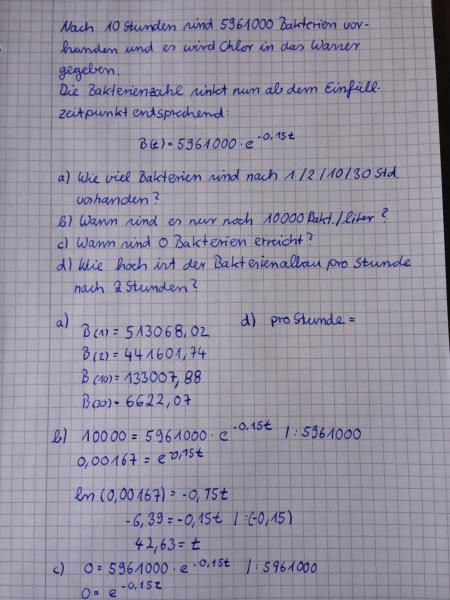 Nach 10 Stunden sind 5961000 Bakterien vor-
handen und es wird Chlor in das Wasser
gegeben.
Die Bakterienzahl sinkt nun ab dem Einfüll-
zeitpunkt entsprechend:
B(t) = 5961000 · e^-0,15t
a) Wie viel Bakterien sind nach 1/2/10/30 Std.
vorhanden?
b) Wann sind es nur noch 10000 Bakt./liter?
c) Wann sind 0 Bakterien erreicht?
d) Wie hoch ist der Bakterienabbau pro Stunde
nach 2 Stunden?
a) B(1) = 513068,02
B(2) = 441601,74
B(10) = 133007,88
B(30) = 6622,07
d) pro Stunde =
b) 10000 = 5961000 · e^-0,15t | : 5961000
0,00167 = e^-0,15t
ln (0,00167) = -0,15t
-6,39 = -0,15t | : (-0,15)
42,63 = t
c) 0 = 5961000 · e^-0,15t | : 5961000
0 = e^-0,15t